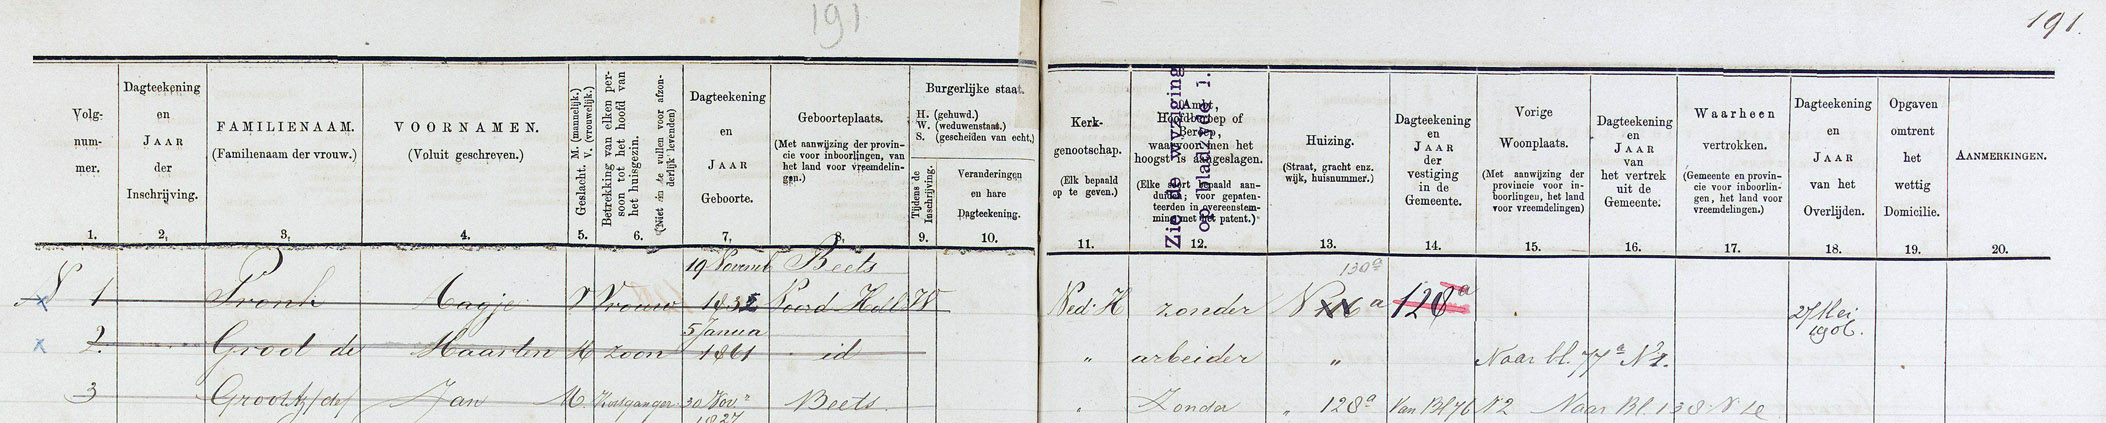 191
191.
Volg-
num-
mer.
1.
Dagteekening
en
JAAR
der
Inschrijving.
2.
FAMILIENAAM.
(Familienaam der vrouw.)
3.
VOORNAMEN.
(Voluit geschreven.)
4.
Geslacht. M. (mannelijk.)
V. (vrouwelijk.)
5.
Betrekking van elken per-
soon tot het hoofd van
het huisgezin.
(Niet in te vullen voor afzon-
derlijk levenden)
6.
Dagteekening
en
JAAR
der
Geboorte.
7.
Geboorteplaats.
(Met aanwijzing der provin-
cie voor inboorlingen, van
het land voor vreemdelin-
gen.)
8.
Burgerlijke staat.
H. (gehuwd.)
W. (weduwenstaat.)
S. (gescheiden van echt.)
Tijdens de
Inschrijving.
9.
Veranderingen
en hare
Dagteekening.
10.
Kerk-
genootschap.
(Elk bepaald
op te geven.)
11.
Ambt,
Hoofdberoep of
Beroep,
waarvoor men het
hoogst is aangeslagen.
(Elke soort bepaald aan-
duiden; voor gepaten-
teerden in overeenstem-
ming met het patent.)
12.
Zie de wyziging
op blaadzyde 1.
Huizing.
(Straat, gracht enz.
wijk, huisnummer.)
13.
Dagteekening
en
JAAR
der
vestiging
in de
Gemeente.
14.
Vorige
Woonplaats.
(Met aanwijzing der
provincie voor in-
boorlingen, het land
voor vreemdelingen)
15.
Dagteekening
en
JAAR
van
het vertrek
uit de
Gemeente.
16.
Waarheen
vertrokken.
(Gemeente en provin-
cie voor inboorlin-
gen, het land voor
vreemdelingen.)
17.
Dagteekening
en
JAAR
van het
Overlijden.
18.
Opgaven
omtrent
het
wettig
Domicilie.
19.
AANMERKINGEN.
20.
19 Novemb Beets
1 Pronk Aagje V Vrouw 1835 Noord Holl W Ned. H zonder N a 130a 128a 27 Mei
1906.
5 Janua
2. Groot de Maarten M zoon 1861 id " arbeider " Naar bl. 77a N 1.
3 Groot (de) Jan M. Kostganger 30 Nov" Beets. " Zonder " 128a Van Bl 76 N 2 Naar Bl. 138 N
1827